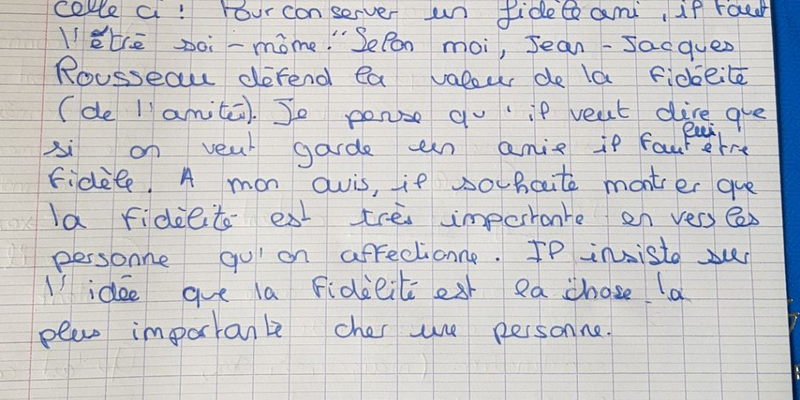 celle ci : Pour conserver un fidèle ami, il faut
l'être soi-même." Selon moi, Jean-Jacques
Rousseau défend la valeur de la fidélité
(de l'amitié). Je pense qu'il veut dire que
si on veut garde un amie il faut lui être
fidèle. A mon avis, il souhaite montrer que
la fidélité est très importante en vers les
personne qu'on affectionne. Il insiste sur
l'idée que la fidélité est la chose la
plus importante cher une personne.